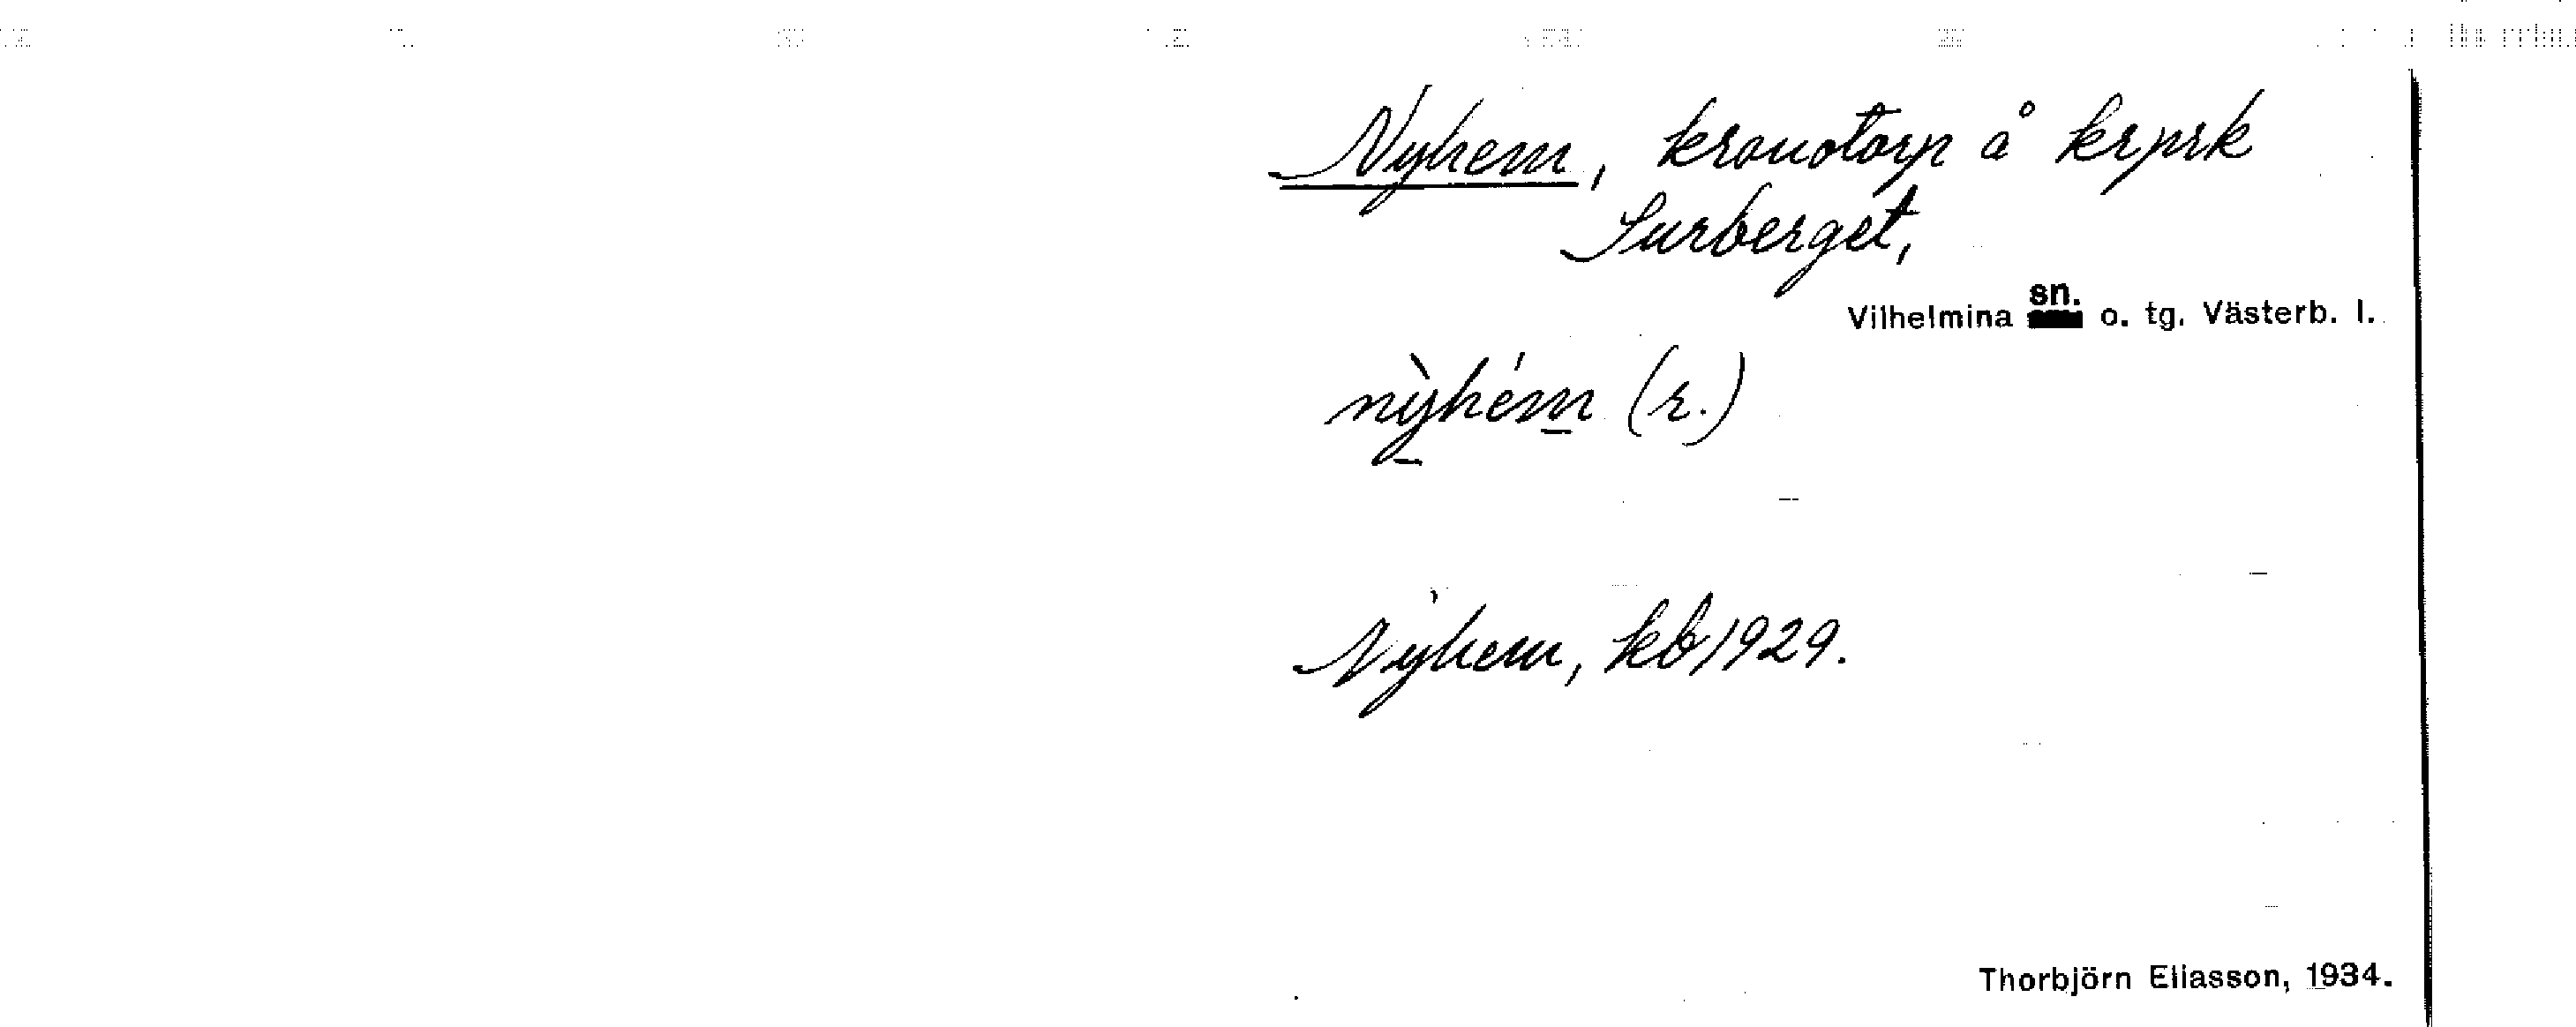 Nyhem, kronotorp å krprk
Surberget,
Vilhelmina sn. o. tg. Västerb. l.
nỳhém (r.)
Nyhem, kb 1929.
Thorbjörn Eliasson, 1934.